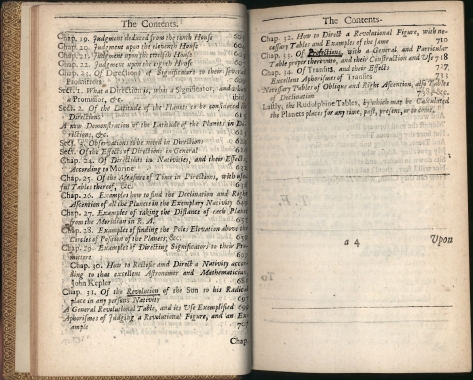 The Contents.
Chap. 19. Judgment deduced from the tenth House
Chap. 20. Judgment upon the eleventh House
Chap. 21. Judgment upon the twelfth House
Chap. 22. Judgment upon the eighth House
Chap. 23. Of Directions of Significators to their several
Promittors.
Sect. 1. What a Direction is, what a Significator, and what
a Promittor, &c.
Sect. 2. Of the Latitude of the Planets to be considered in
Directions
A new Demonstration of the Latitude of the Planets in Di-
rections, &c.
Sect. 3. Observations to be noted in Directions
Sect. Of the Effects of Directions in General
Chap. 24. Of Directions in Nativities, and their Effects,
According to Morine 632
Chap. 25. Of the Measure of Time in Directions, with use-
ful Tables thereof, &c.
Chap. 26. Examples how to find the Declination and Right
Ascention of all the Planets in the Exemplary Nativity 649
Chap. 27. Examples of taking the Distance of each Planet
from the Meridian in R. A. 657
Chap. 28. Examples of finding the Poles Elevation above the
Circles of Position of the Planets, &c. 659
Chap. 29. Examples of Directing Significators to their Pro-
mittors
Chap. 30. How to Rectifie and Direct a Nativity accor-
ding to that excellent Astronomer and Mathematician,
John Kepler
Chap. 31. Of the Revolution of the Sun to his Radical
place in any persons Nativity 697
A General Revolutional Table, and its Use Exemplified 699
Aphorismes of Judging a Revolutional Figure, and an Ex-
ample 707
Chap.
The Contents.
Chap. 32. How to Direct a Revolutional Figure, with ne-
cessary Tables and Examples of the same 710
Chap. 33. Of Profections, with a General and Particular
Table proper therewith, and their Construction and Use 718
Chap. 34. Of Transits, and their Effects 727
Excellent Aphorismes of Transits 733
Necessary Tables of Oblique and Right Ascention, also Tables
of Declination 738 &c.
Lastly, the Rudolphine Tables, by which may be Calculated
the Planets places for any time, past, present, or to come,
a 4
Upon